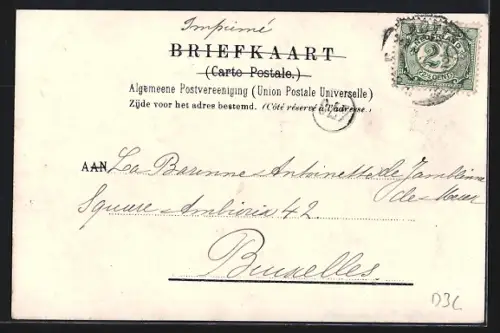 Imprimé
BRIEFKAART
(Carte Postale.)
Algemeene Postvereeniging (Union Postale Universelle)
Zijde voor het adres bestemd. (Côté réservé à l'adresse.)
2½
CENT
AAN La Baronne Antoinette de
de
Square Ambiorix 42.
Bruxelles
D3L